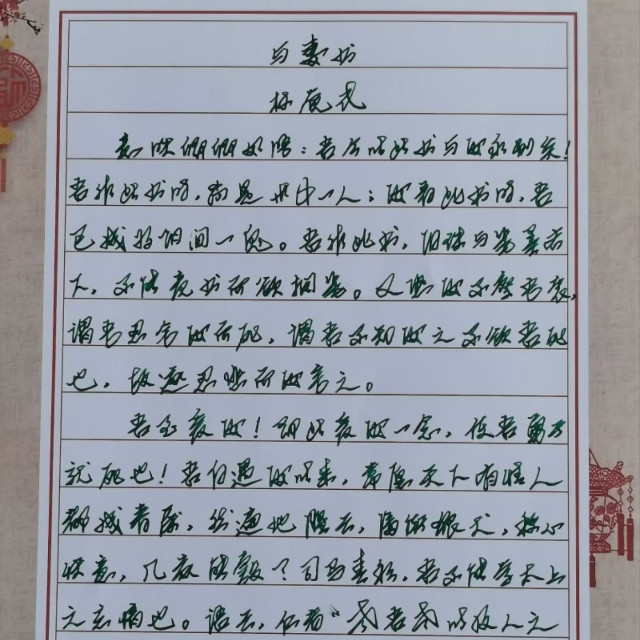 与妻书
林觉民
意映卿卿如晤：吾今以此书与汝永别矣！
吾作此书时，尚是世中一人；汝看此书时，吾
已成为阴间一鬼。吾作此书，泪珠与笔墨齐
下，不能竟书而欲搁笔。又恐汝不察吾衷，
谓吾忍舍汝而死，谓吾不知汝之不欲吾死
也，故遂忍悲为汝言之。
吾至爱汝！即此爱汝一念，使吾勇于
就死也！吾自遇汝以来，常愿天下有情人
都成眷属，然遍地腥云，满街狼犬，称心
快意，几家能彀？司马春衫，吾不能学太上
之忘情也。语云，仁者“老吾老以及人之